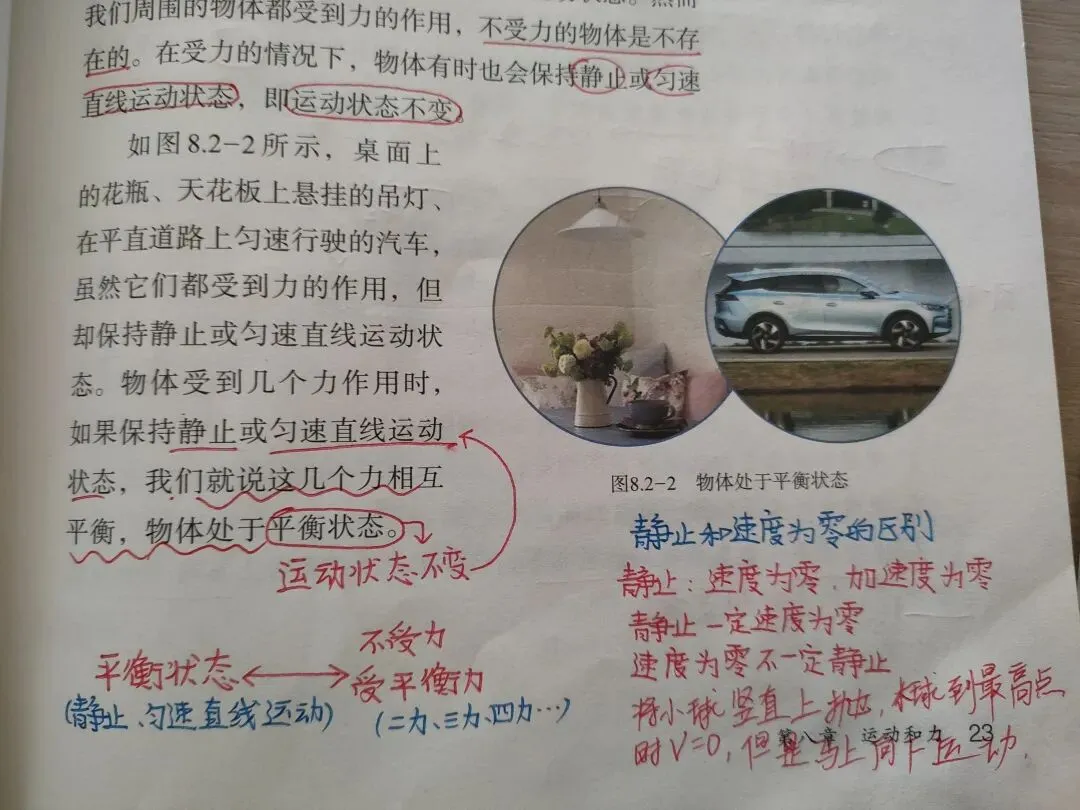 我们周围的物体都受到力的作用，不受力的物体是不存
在的。在受力的情况下，物体有时也会保持静止或匀速
直线运动状态，即运动状态不变。
如图8.2-2所示，桌面上
的花瓶、天花板上悬挂的吊灯、
在平直道路上匀速行驶的汽车，
虽然它们都受到力的作用，但
却保持静止或匀速直线运动状
态。物体受到几个力作用时，
如果保持静止或匀速直线运动
状态，我们就说这几个力相互
平衡，物体处于平衡状态。
运动状态不变
平衡状态
(静止、匀速直线运动)
不受力
受平衡力
(二力、三力、四力…)
图8.2-2 物体处于平衡状态
静止和速度为零的区别
静止：速度为零，加速度为零
静止一定速度为零
速度为零不一定静止
将小球竖直上抛，球到最高点
时V=0，但是马上向下运动．
第八章 运动和力 23